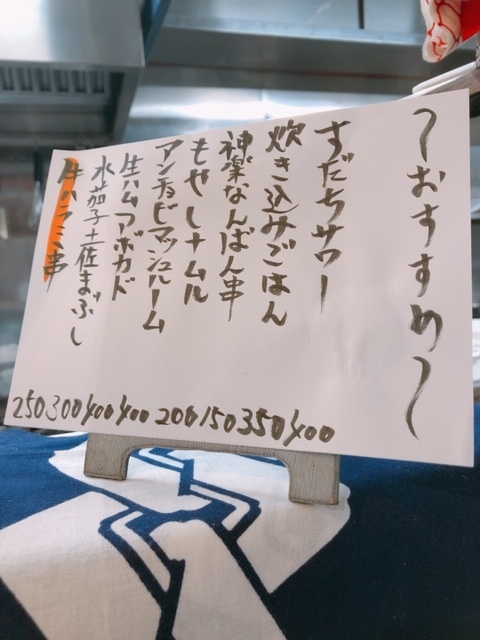 〜おすすめ〜
すだちサワー 400
炊き込みごはん 350
神楽なんばん串 150
もやしナムル 200
アンチョビマッシュルーム 400
生ハムアボカド 400
水茄子土佐まぶし 300
牛ハラミ串 250